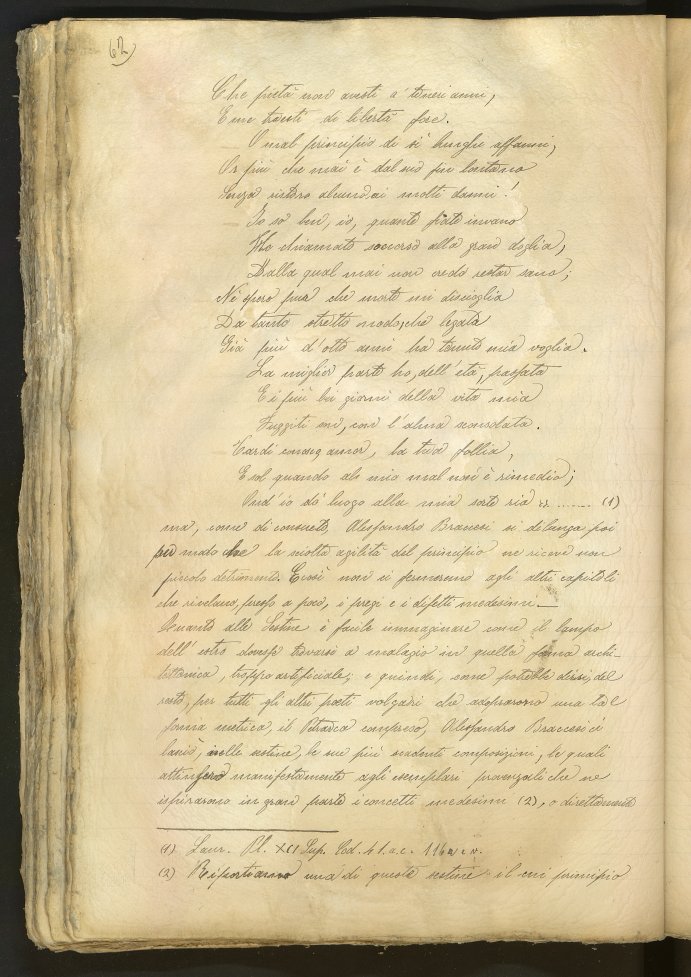 62
Che pietà non avesti a' teneri anni,
E me traesti di libertà fore.
O mal principio di sì lunghi affanni,
Or più che mai è dal suo fin lontano
Senza ristoro alcuno ai molti danni!
Io so ben, io, quante fiate invano
Ho chiamato soccorso alla gran doglia,
Dalla qual mai non credo restar sano;
Nè spero pria che morte mi discioglia
Da tanto stretto nodo, che legata
Già più d'otto anni ha tenuto mia voglia.
La miglior parte ho, dell'età, passata
E i più bei giorni della vita mia
Fuggiti son, con l'alma sconsolata.
Tardi conosco amor, la tua follia,
E sol quando al mio mal non è rimedio;
Ond'io dò luogo alla mia sorte ria ...... (1)
ma, come di consueto, Alessandro Braccesi si dilunga poi
per modo che la molta agilità del principio ne riceve non
piccolo detrimento. Così non ci fermeremo agli altri capitoli
che rivelano, presso a poco, i pregi e i difetti medesimi._
Quanto alle Sestine è facile immaginare come il lampo
dell'estro dovesse trovarsi a malagio in quella forma archi-
tettonica, troppo artificiale; e quindi, come potrebbe dirsi, del
resto, per tutti gli altri poeti volgari che adoprarono una tal
forma metrica, il Petrarca compreso, Alessandro Braccesi ci
lasciò, nelle sestine, le sue più scadenti composizioni, le quali
attinsero manifestamente agli esemplari provenzali che ne
ispirarono in gran parte i concetti medesimi (2), o direttamente
(1) Laur. Pl. XCI Sup. Cod. 41. a. c. 114
(2) Riportiamo una di queste sestine il cui principio